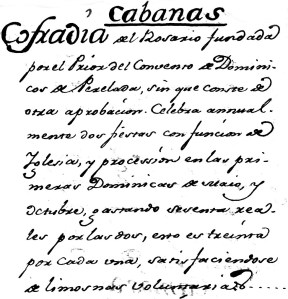 Cabanas
Cofradia del Rosario fundada
por el Prior del Convento de Domini-
cos de Perelada, sin que conste de
otra aprobacion. Celebra annual-
mente dos fiestas con funcion de
Iglesia, y procession en las pri-
meras Dominicas de Maio, y
Octubre, gastando sesenta rea-
les por las dos, esto es treinta
por cada una, satisfaciendose
de limosnas voluntarias.....